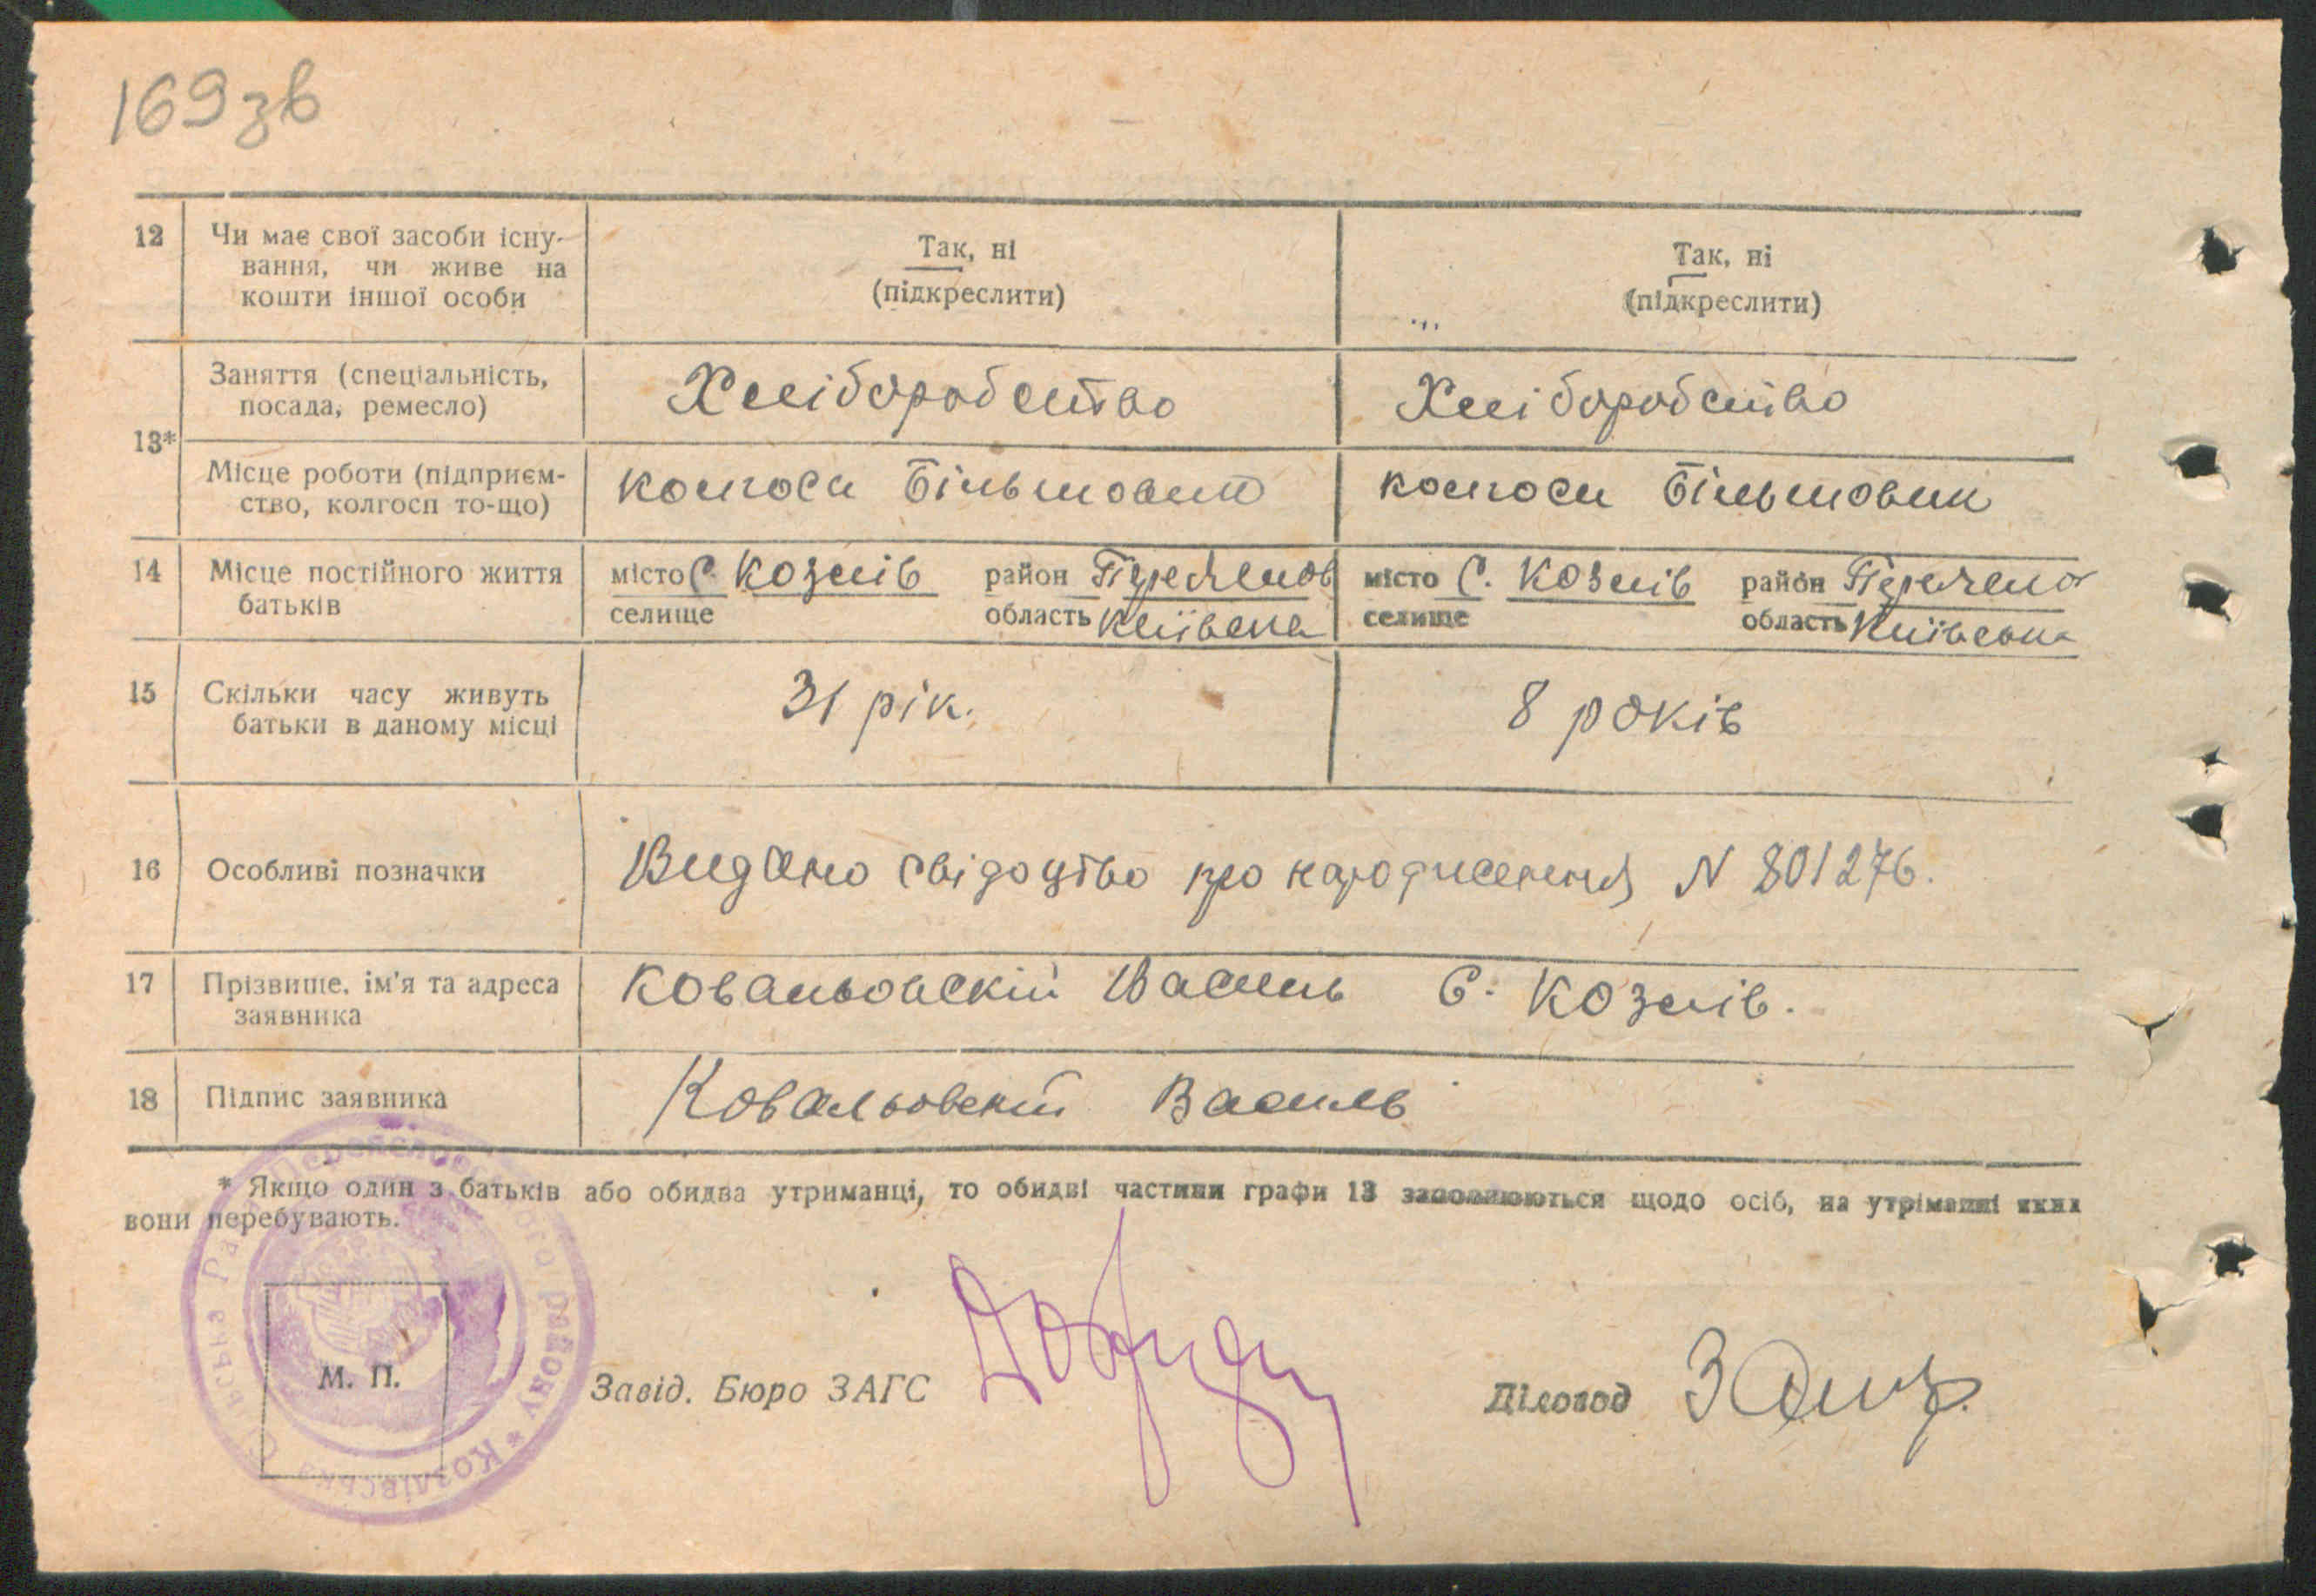 169зв
12 Чи має свої засоби існу- Так, ні Так, ні
вання, чи живе на (підкреслити) (підкреслити)
кошти іншої особи
13* Заняття (спеціальність, Хліборобство Хліборобство
посада, ремесло)
Місце роботи (підприєм- колгосп Більшовик колгосп Більшовик
ство, колгосп то-що)
14 Місце постійного життя місто С. Козлів район Переяслов місто С. Козлів район Переясло
батьків селище область Київська селище область Київська
15 Скільки часу живуть 31 рік. 8 років
батьки в даному місці
16 Особливі позначки Видано свідоцтво про народження N 801276.
17 Прізвище, ім'я та адреса Ковальовский Василь С. Козлів.
заявника
18 Підпис заявника Ковальовский Василь
* Якщо один з батьків або обидва утриманці, то обидві частини графи 13 заповнюються щодо осіб, на утріманні яких
вони перебувають.
М. П. Завід. Бюро ЗАГС Діловод
Козлівська Сільська Рада Переяславського району *